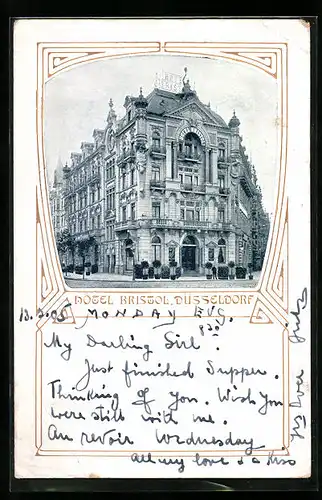 HÔTEL BRISTOL, DÜSSELDORF
MONDAY EVG.
8 30
My Darling Girl.
Just finished Supper.
Thinking of you. Wish you
were still with me.
Au revoir Wednesday
all my love & a kiss